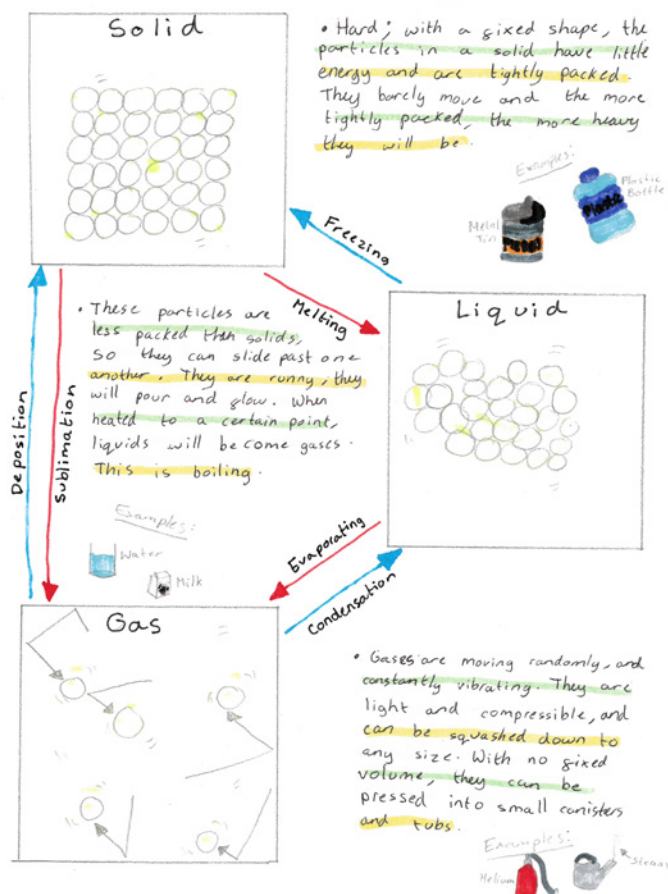 Solid
• Hard; with a gixed shape, the
particles in a solid have little
energy and are tightly packed.
They barely move and the more
tightly packed, the more heavy
they will be.
Examples:
Metal
Tin
Metal
Plastic
Bottle
Plastic
Freezing
Melting
Deposition
Sublimation
• These particles are
less packed than solids,
so they can slide past one
another. They are runny, they
will pour and glow. When
heated to a certain point,
liquids will become gases.
This is boiling.
Examples:
Water
Milk
Liquid
Evaporating
Condensation
Gas
• Gases are moving randomly, and
constantly vibrating. They are
light and compressible, and
can be squashed down to
any size. With no gixed
volume, they can be
pressed into small canisters
and tubs.
Examples:
Helium
Steam